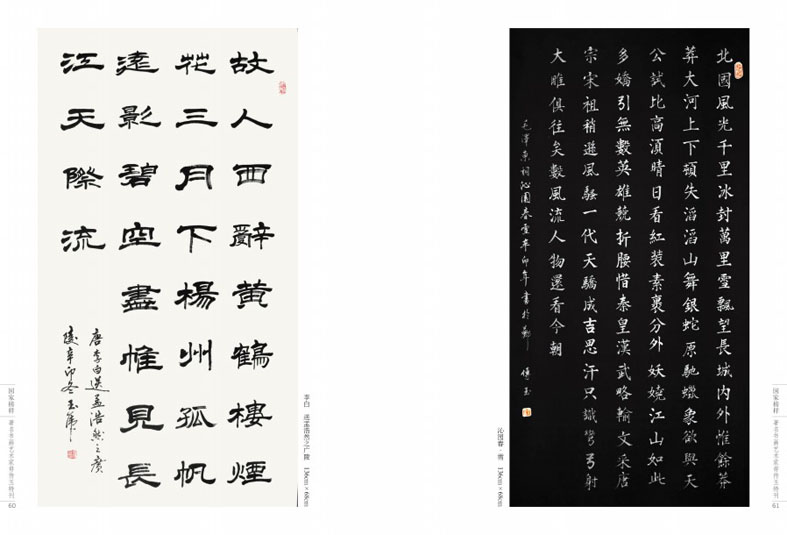 故人西辭黄鶴樓煙
花三月下楊州孤帆
遠影碧空盡惟見長
江天際流
唐李白送孟浩然之廣
陵辛卯冬玉
李白 送孟浩然之广陵 136cm×68cm
国家榜样
著名书画艺术家
特刊
60
北國風光千里冰封萬里雪飄望長城内外惟餘莽
莽大河上下頓失滔滔山舞銀蛇原馳蠟象欲與天
公試比高湏晴日看紅裝素裹分外妖嬈江山如此
多嬌引無數英雄競折腰惜秦皇漢武略輸文采唐
宗宋祖稍遜風騷一代天驕成吉思汗只識彎弓射
大雕俱往矣數風流人物還看今朝
毛澤東詞沁園春雪辛卯年書於
玉
沁园春·雪 136cm×68cm
国家榜样
著名书画艺术家
特刊
61